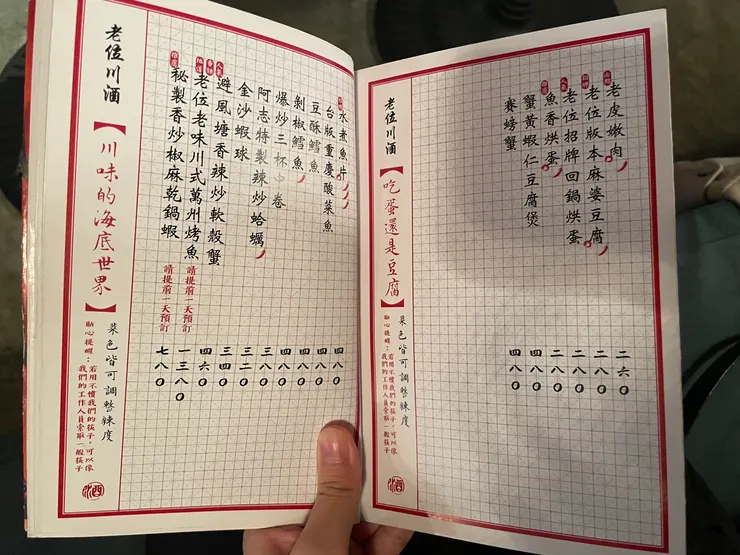 老皮嫩肉 二六0
老位版本麻婆豆腐 二八0
老位招牌回鍋烘蛋 二八0
魚香烘蛋 二八0
蟹黃蝦仁豆腐煲 四八0
賽螃蟹 四八0
老位川酒
【吃蛋還是豆腐】
菜色皆可調整辣度
貼心提醒：若用不慣我們的筷子，可以像
我們的工作人員索取一般筷子
水煮魚片 四八0
台版重慶酸菜魚 四八0
豆酥鱈魚 四八0
剁椒鱈魚 四八0
爆炒三杯中卷 三八0
阿志特製辣炒蛤蠣 三二0
金沙蝦球 三四0
避風塘香辣炒軟殼蟹 四六0
老位老味川式萬州烤魚 請提前一天預訂 一三八0
秘製香炒椒麻乾鍋蝦 請提前一天預訂 七八0
老位川酒
【川味的海底世界】
菜色皆可調整辣度
貼心提醒：若用不慣我們的筷子，可以像
我們的工作人員索取一般筷子